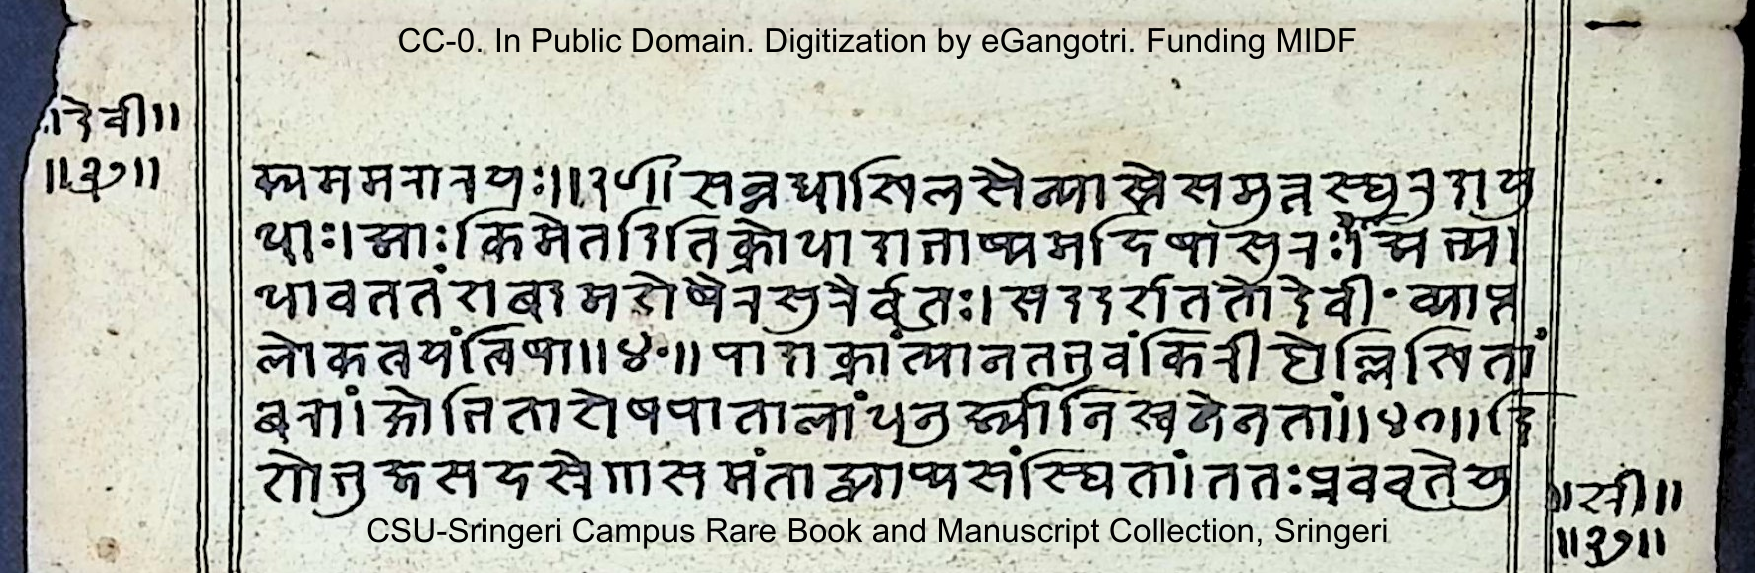 CC-0. In Public Domain. Digitization by eGangotri. Funding MIDF
देवी॥
॥२७॥
क्यममरारयः॥३९॥सन्नधाखिलसैन्यास्ते समुत्तस्थुरुदायु
धाः।आःकिमेतदितिक्रोधादाभाष्यमहिषासुरः।अभ्य
धावततंशब्दमशेषैरसुरैर्वृतः।सददर्शततोदेवीं व्याप्त
लोकत्रयंत्विषा॥४०॥पादाक्रांत्यानतभुवंकिरीटोल्लिखितां
बरां।क्षोभिताशेषपातालांधनुर्ज्यानिस्वनेनतां॥४१॥दि
शोभुजसहस्रेणसमंताद्व्याप्यसंस्थितां।ततःप्रववृतेयु
॥२७॥
CSU-Sringeri Campus Rare Book and Manuscript Collection, Sringeri